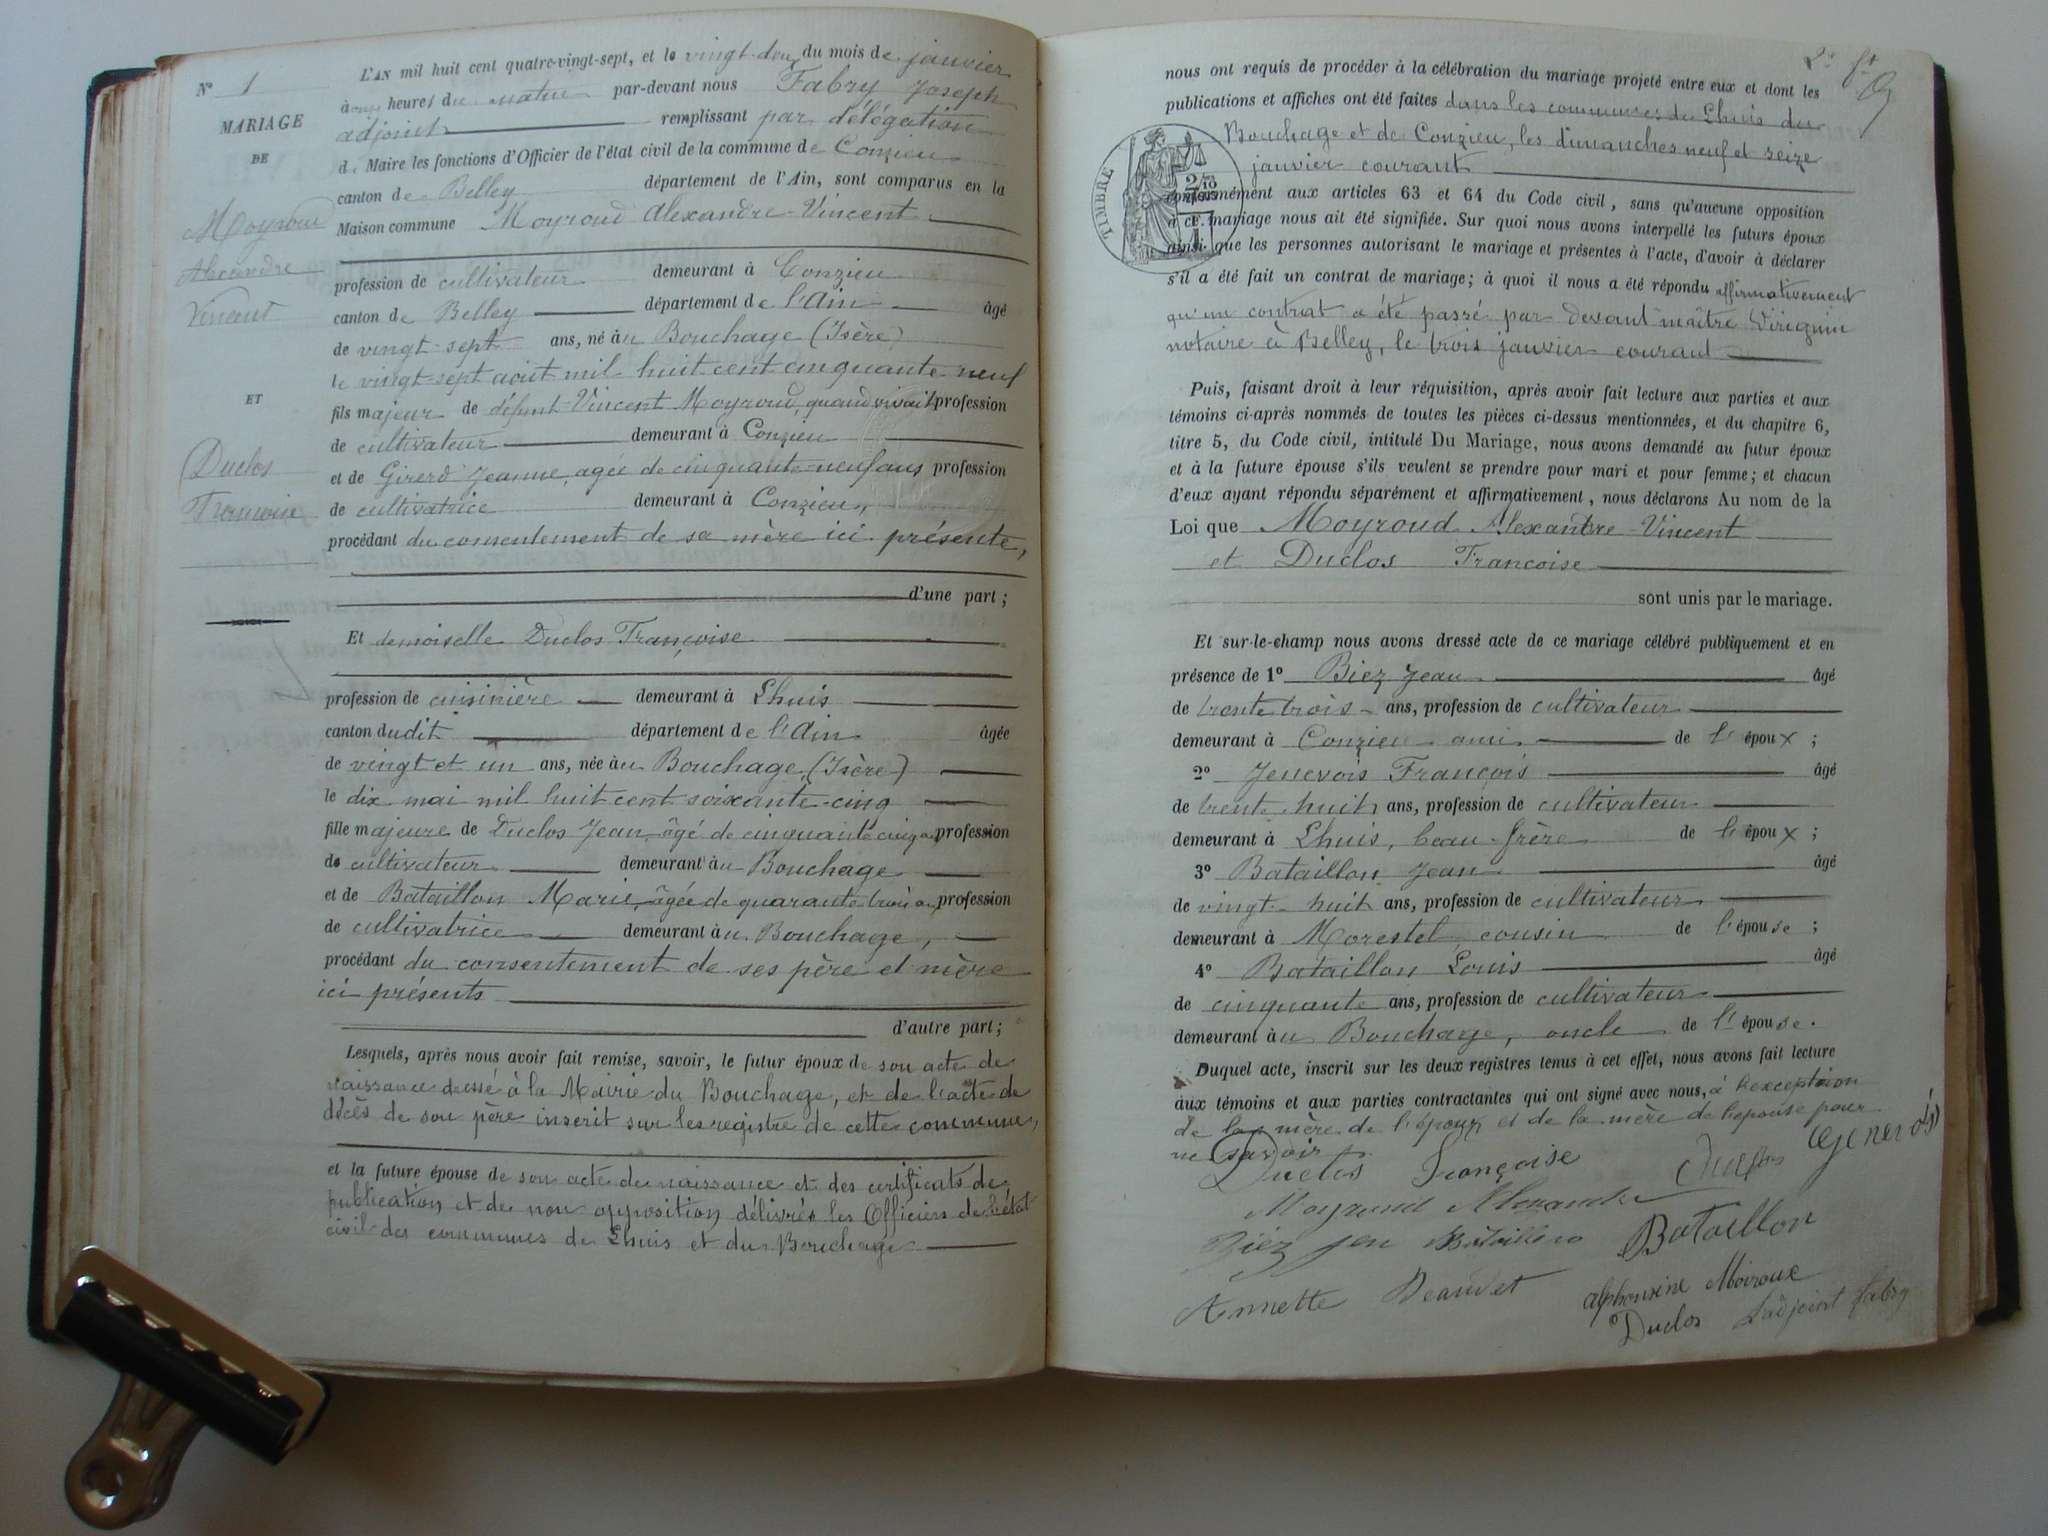 N° 1
MARIAGE
DE
Moyroud
Alexandre
Vincent
ET
Duclos
Françoise
L'AN mil huit cent quatre-vingt-sept, et le vingt-deux du mois de janvier
à onze heures du matin par-devant nous Fabry Joseph
adjoint remplissant par délégation
de Maire les fonctions d'Officier de l'état civil de la commune de Conzieu
canton de Belley département de l'Ain, sont comparus en la
Maison commune Moyroud Alexandre-Vincent
profession de cultivateur demeurant à Conzieu
canton de Belley département de l'Ain âgé
de vingt-sept ans, né au Bouchage (Isère)
le vingt-sept août mil huit cent cinquante-neuf
fils majeur de défunt Vincent Moyroud, quand vivait profession
de cultivateur demeurant à Conzieu
et de Girerd Jeanne, agée de cinquante-neuf ans profession
de cultivatrice demeurant à Conzieu,
procédant du consentement de sa mère ici présente,
d'une part;
Et demoiselle Duclos Françoise
profession de cuisinière demeurant à Lhuis
canton dudit département de l'Ain âgée
de vingt et un ans, née au Bouchage (Isère)
le dix mai mil huit cent soixante-cinq
fille majeure de Duclos Jean, âgé de cinquante cinq ans profession
de cultivateur demeurant au Bouchage
et de Bataillon Marie, âgée de quarante trois ans profession
de cultivatrice demeurant au Bouchage,
procédant du consentement de ses père et mère
ici présents
d'autre part;
Lesquels, après nous avoir fait remise, savoir, le futur époux de son acte de
naissance dressé à la Mairie du Bouchage, et de l'acte de
décès de son père inscrit sur les registre de cette commune,
et la future épouse de son acte de naissance et des certificats de
publication et de non opposition délivrés les Officiers de l'état
civil des communes de Lhuis et du Bouchage
nous ont requis de procéder à la célébration du mariage projeté entre eux et dont les
publications et affiches ont été faites dans les communes de Lhuis du
Bouchage et de Conzieu, les dimanches neuf et seize
janvier courant
TIMBRE
2/10
conformément aux articles 63 et 64 du Code civil, sans qu'aucune opposition
à ce mariage nous ait été signifiée. Sur quoi nous avons interpellé les futurs époux
ainsi que les personnes autorisant le mariage et présentes à l'acte, d'avoir à déclarer
s'il a été fait un contrat de mariage; à quoi il nous a été répondu affirmativement
qu'un contrat a été passé par devant maître Virignin
notaire à Belley, le trois janvier courant
Puis, faisant droit à leur réquisition, après avoir fait lecture aux parties et aux
témoins ci-après nommés de toutes les pièces ci-dessus mentionnées, et du chapitre 6,
titre 5, du Code civil, intitulé Du Mariage, nous avons demandé au futur époux
et à la future épouse s'ils veulent se prendre pour mari et pour femme; et chacun
d'eux ayant répondu séparément et affirmativement, nous déclarons Au nom de la
Loi que Moyroud Alexandre-Vincent
et Duclos Francoise
sont unis par le mariage.
Et sur-le-champ nous avons dressé acte de ce mariage célébré publiquement et en
présence de 1° Biez Jean âgé
de trente trois ans, profession de cultivateur
demeurant à Conzieu ami de l'époux;
2° Jenevois François âgé
de trente huit ans, profession de cultivateur
demeurant à Lhuis, beau-frère de l'époux;
3° Bataillon Jean âgé
de vingt-huit ans, profession de cultivateur
demeurant à Morestel cousin de l'épouse;
4° Bataillon Louis âgé
de cinquante ans, profession de cultivateur
demeurant au Bouchage, oncle de l'épouse.
Duquel acte, inscrit sur les deux registres tenus à cet effet, nous avons fait lecture
aux témoins et aux parties contractantes qui ont signé avec nous, à l'exception
de la mère de l'époux et de la mère de l'épouse pour
ne savoir
Duclos Françoise
Moyroud Alexandre
Biez Jean Bataillon Bataillon
Annette Beaudet Alphonsine Moiroux
Duclos L'adjoint Fabry